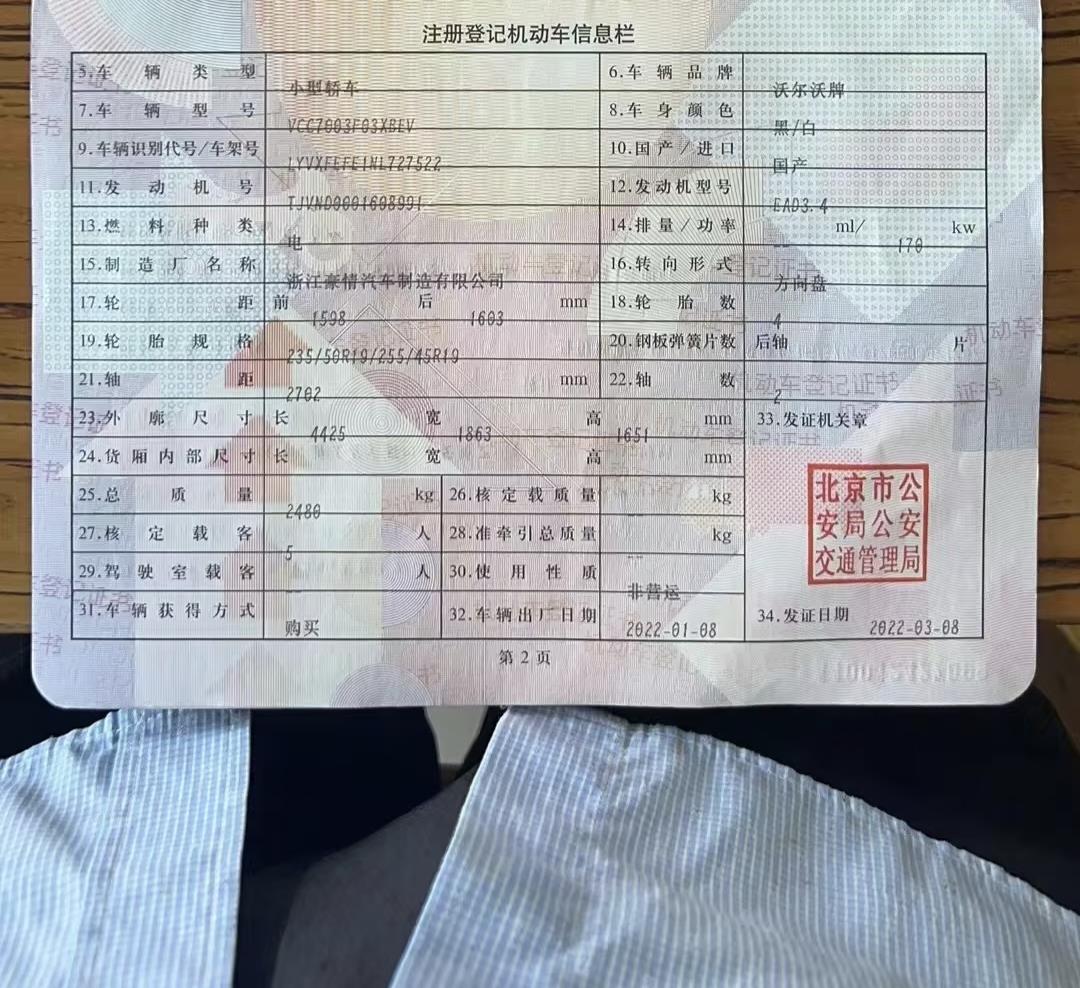 注册登记机动车信息栏
5.车辆类型 小型轿车 6.车辆品牌 沃尔沃牌
7.车辆型号 VCC7003F03XBEV 8.车身颜色 黑/白
9.车辆识别代号/车架号 LYVXFEFE1NL727522 10.国产/进口 国产
11.发动机号 TJVND0001608991 12.发动机型号 EAD3.4
13.燃料种类 电 14.排量/功率 -- ml/ 170 kw
15.制造厂名称 浙江豪情汽车制造有限公司 16.转向形式 方向盘
17.轮距 前 1598 后 1603 mm 18.轮胎数 4
19.轮胎规格 235/50R19/255/45R19 20.钢板弹簧片数 后轴 片
21.轴距 2702 mm 22.轴数 2
23.外廓尺寸 长 4425 宽 1863 高 1651 mm 33.发证机关章
24.货厢内部尺寸 长 宽 高 mm
25.总质量 2480 kg 26.核定载质量 -- kg
27.核定载客 5 人 28.准牵引总质量 -- kg
29.驾驶室载客 -- 人 30.使用性质 非营运
31.车辆获得方式 购买 32.车辆出厂日期 2022-01-08 34.发证日期 2022-03-08
北京市公
安局公安
交通管理局
第2页